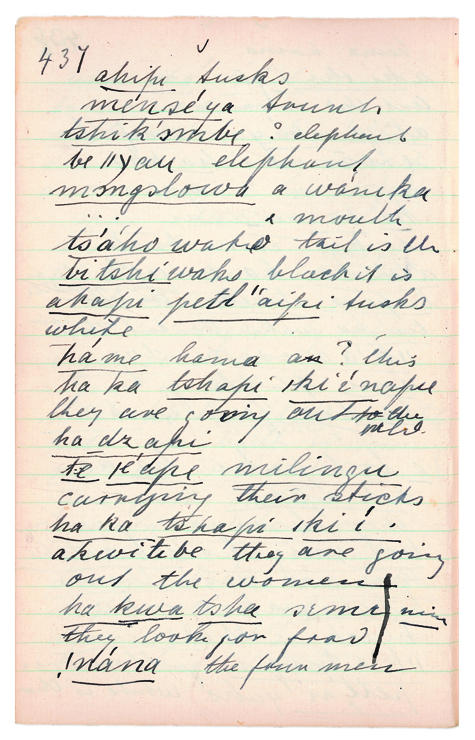 437
akipi tusks
ménséya trunk
tshik'smbe ? elephant
be//yau elephant
a wanika
a mouth
tsáho wako tail is
bitshi wako black it is
akapi petl'aipi tusks
white
háme hama an? this
ha ka tshapi
they are going out to the
ha dzapi
milingu
carrying their sticks
ha ka tshapi iki í.
akwitibe they are going
out the women
ha kwa tsha seme
they look for food
!nána the four men